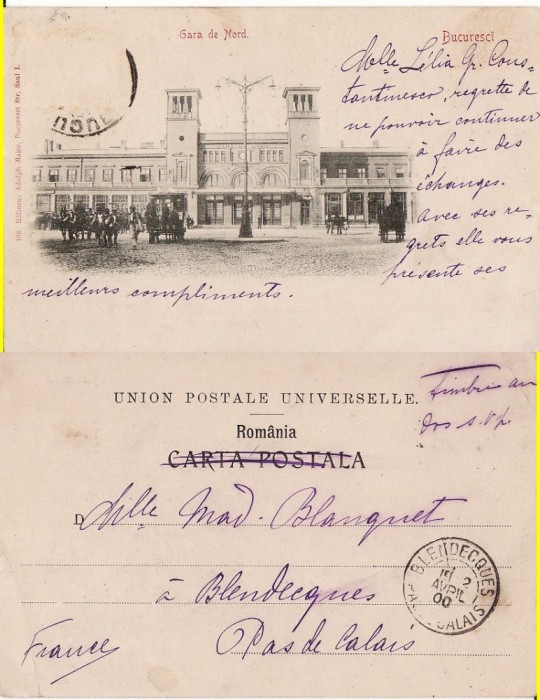 Gara de Nord.
Bucurescĭ
Mlle Lélia Gr. Cons-
tantinesco, regrette de
ne pouvoir continuer
à faire des
échanges.
Avec ses re-
grets elle vous
présente ses
meilleurs compliments.
Editura: Adolph Maier, Bucuresci Str.
UNION POSTALE UNIVERSELLE.
Timbre au
dos s.v.p
România
CARTA POSTALA
D Mlle Mad. Blanquet
à Blendecques
Pas de Calais
France
BLENDECQUES
2
AVRIL
00
PAS CALAIS